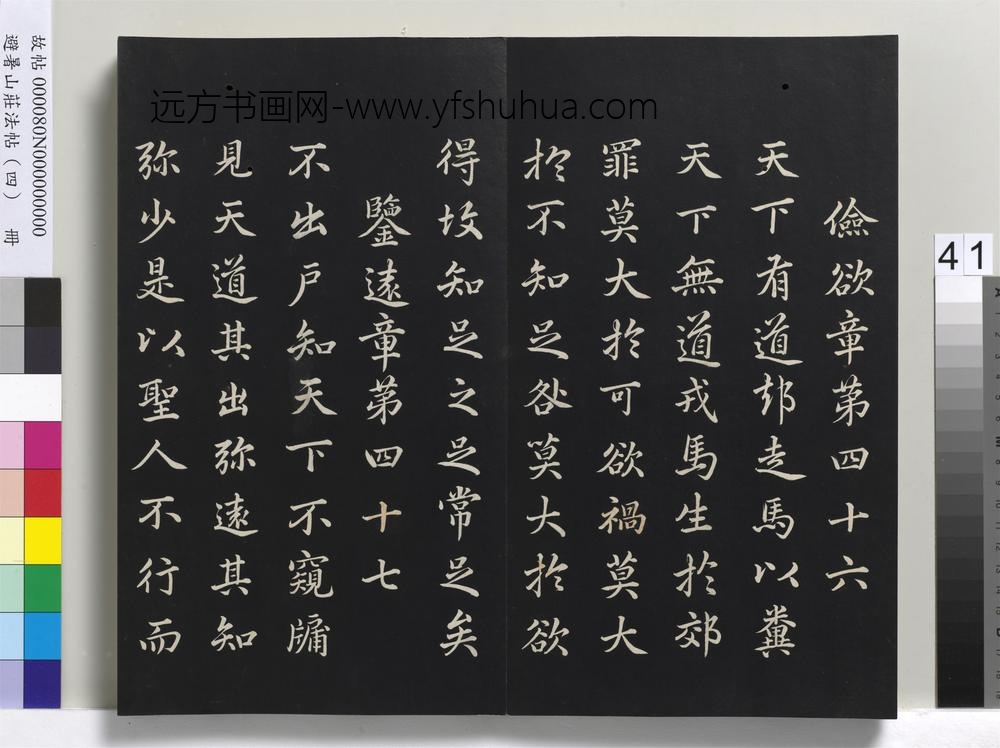 远方书画网-www.yfshuhua.com
儉欲章第四十六
天下有道郄走馬以糞
天下無道戎馬生於郊
罪莫大於可欲禍莫大
於不知足咎莫大於欲
得故知足之足常足矣
鑒遠章第四十七
不出戶知天下不窺牖
見天道其出弥遠其知
弥少是以聖人不行而
故帖000080N000000000
避暑山莊法帖(四) 冊
41